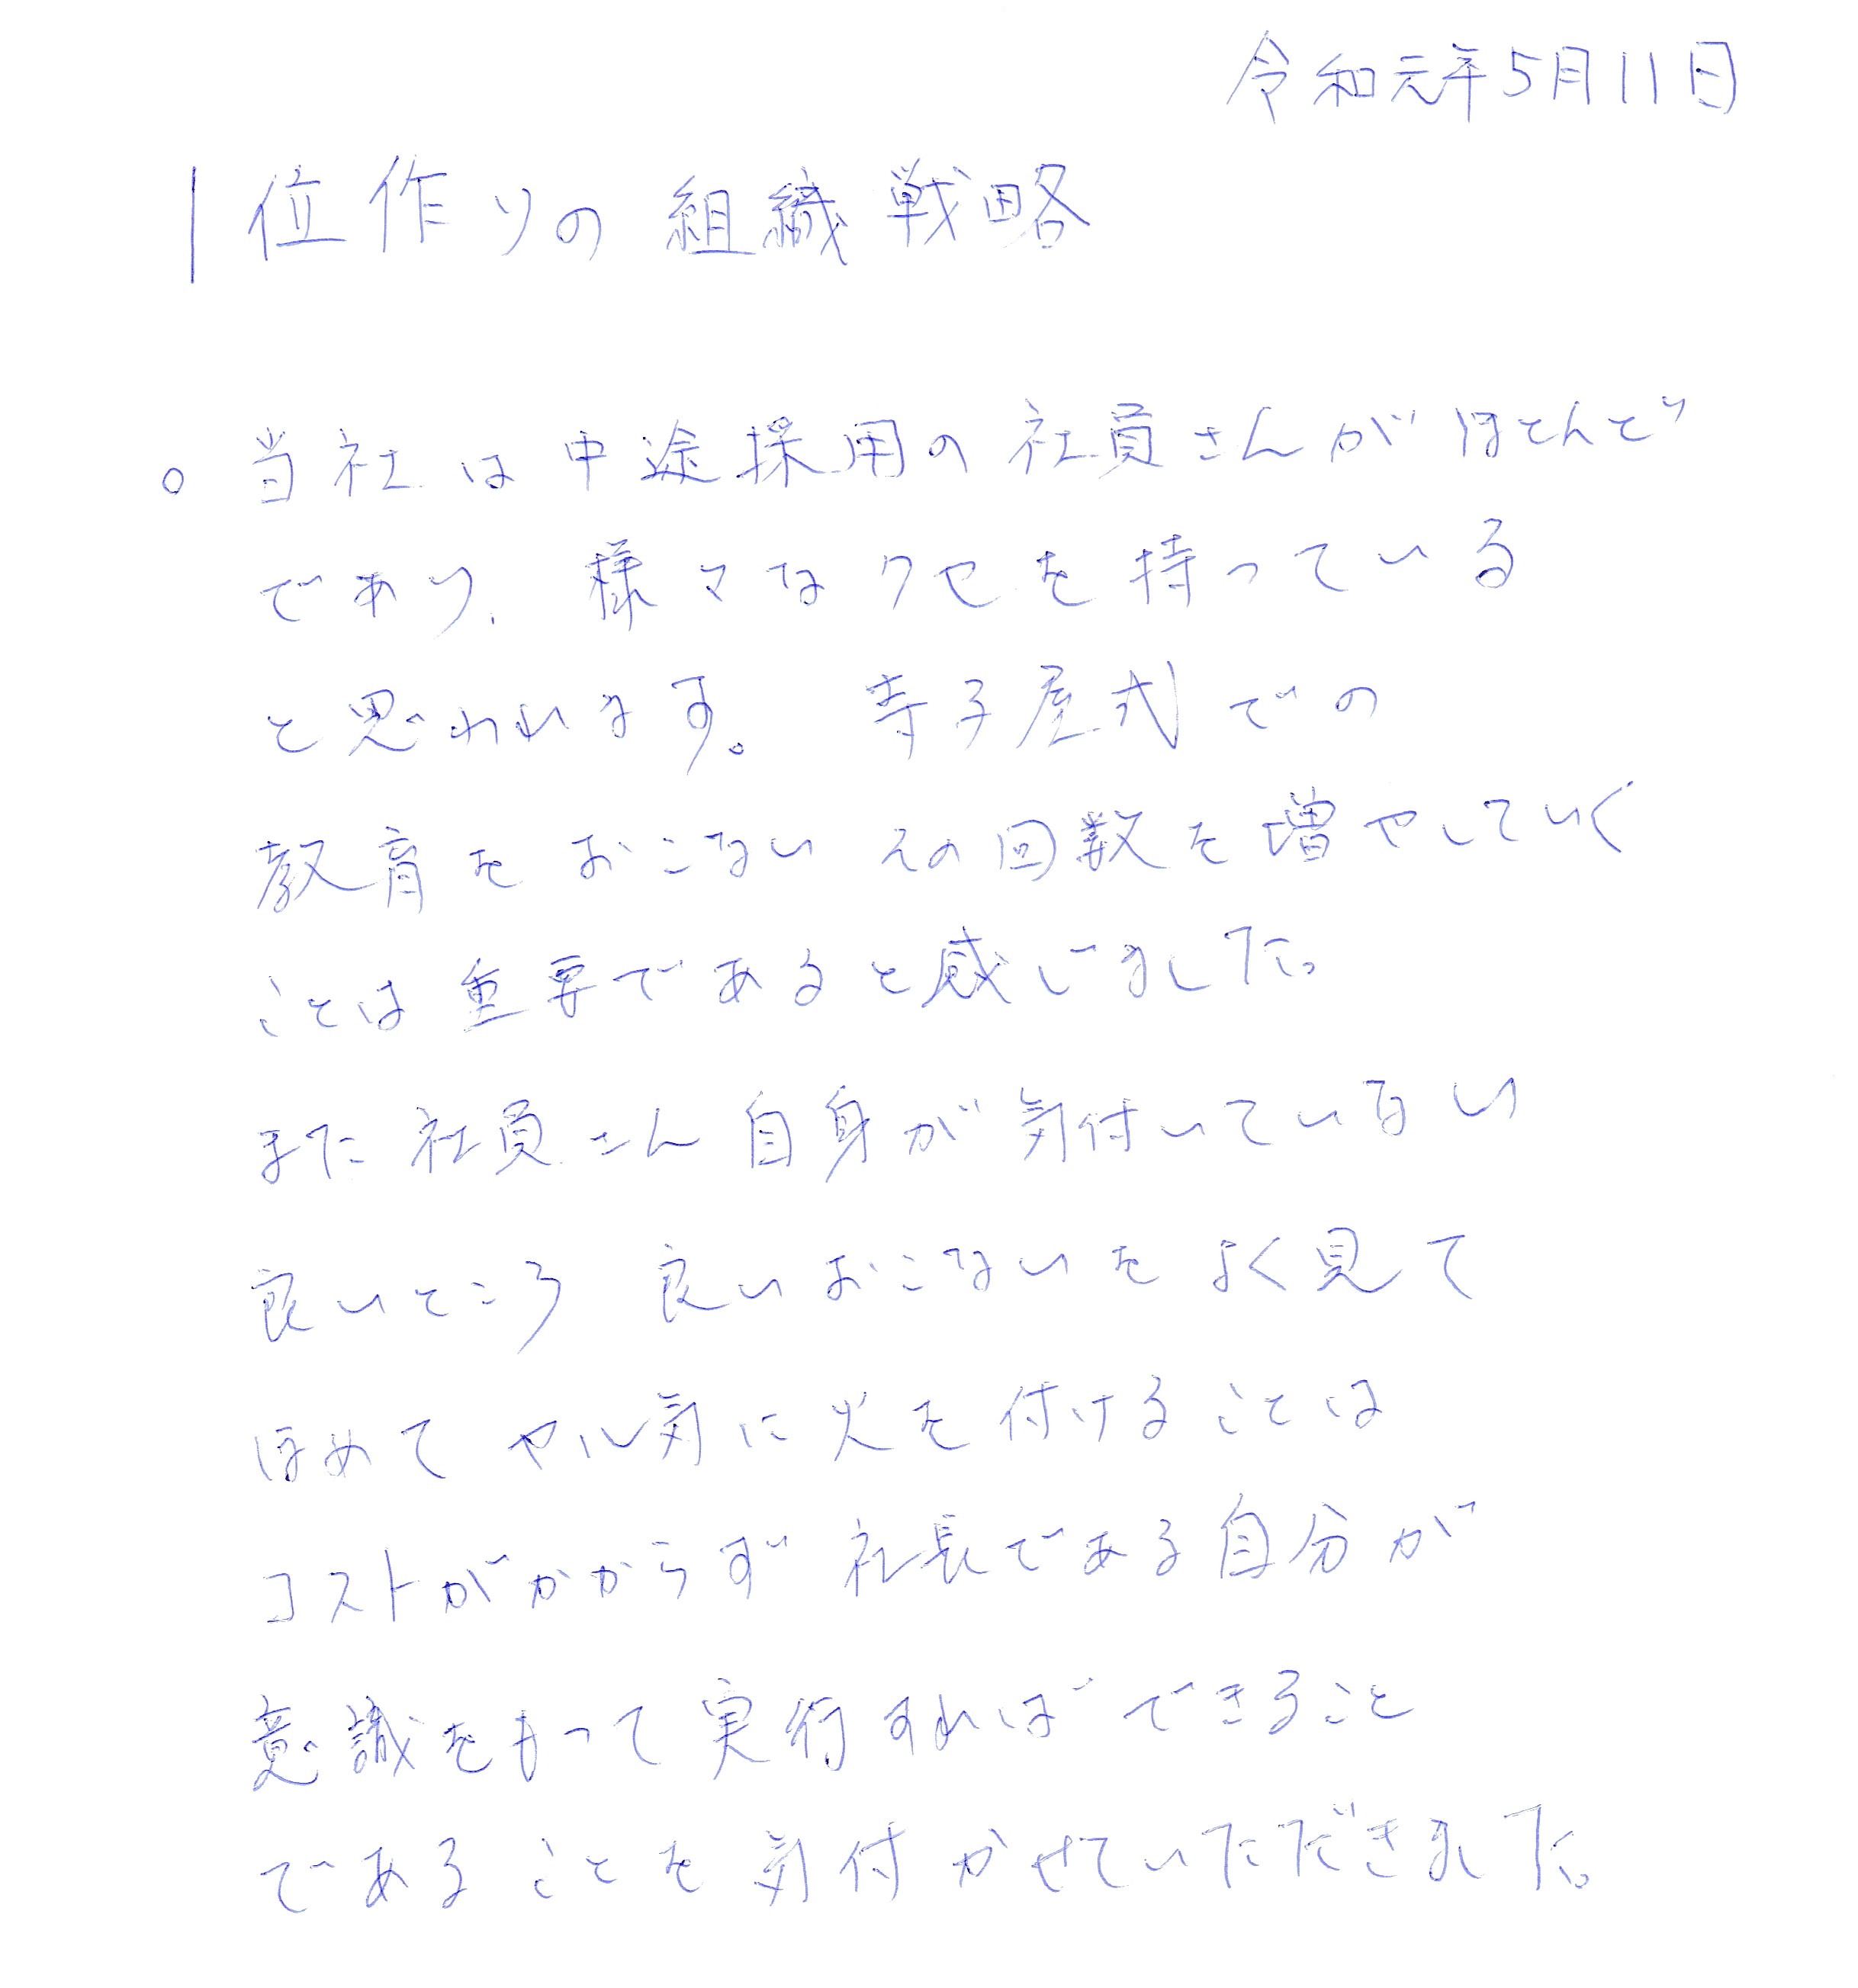 令和元年5月11日
1位作りの組織戦略
○当社は中途採用の社員さんがほとんど
であり、様々なクセを持っている
と思われます。寺子屋式での
教育をおこないその回数を増やしていく
ことは重要であると感じました。
また社員さん自身が気付いていない
良いところ 良いおこないをよく見て
ほめてヤル気に火を付けることは
コストがかからず社長である自分が
意識をもって実行すればできること
であることを気付かせていただきました。